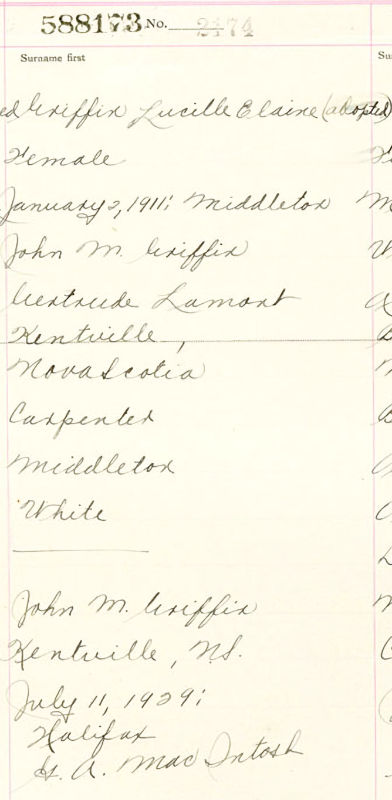 588173 No. 2174
Surname first
Griffin Lucille Elaine (adopted)
Female
January 2, 1911; Middleton
John M. Griffin
Gertrude Lamont
Kentville,
Nova Scotia
Carpenter
Middleton
White
John M. Griffin
Kentville, N.S.
July 11, 1929;
Halifax
A. MacIntosh